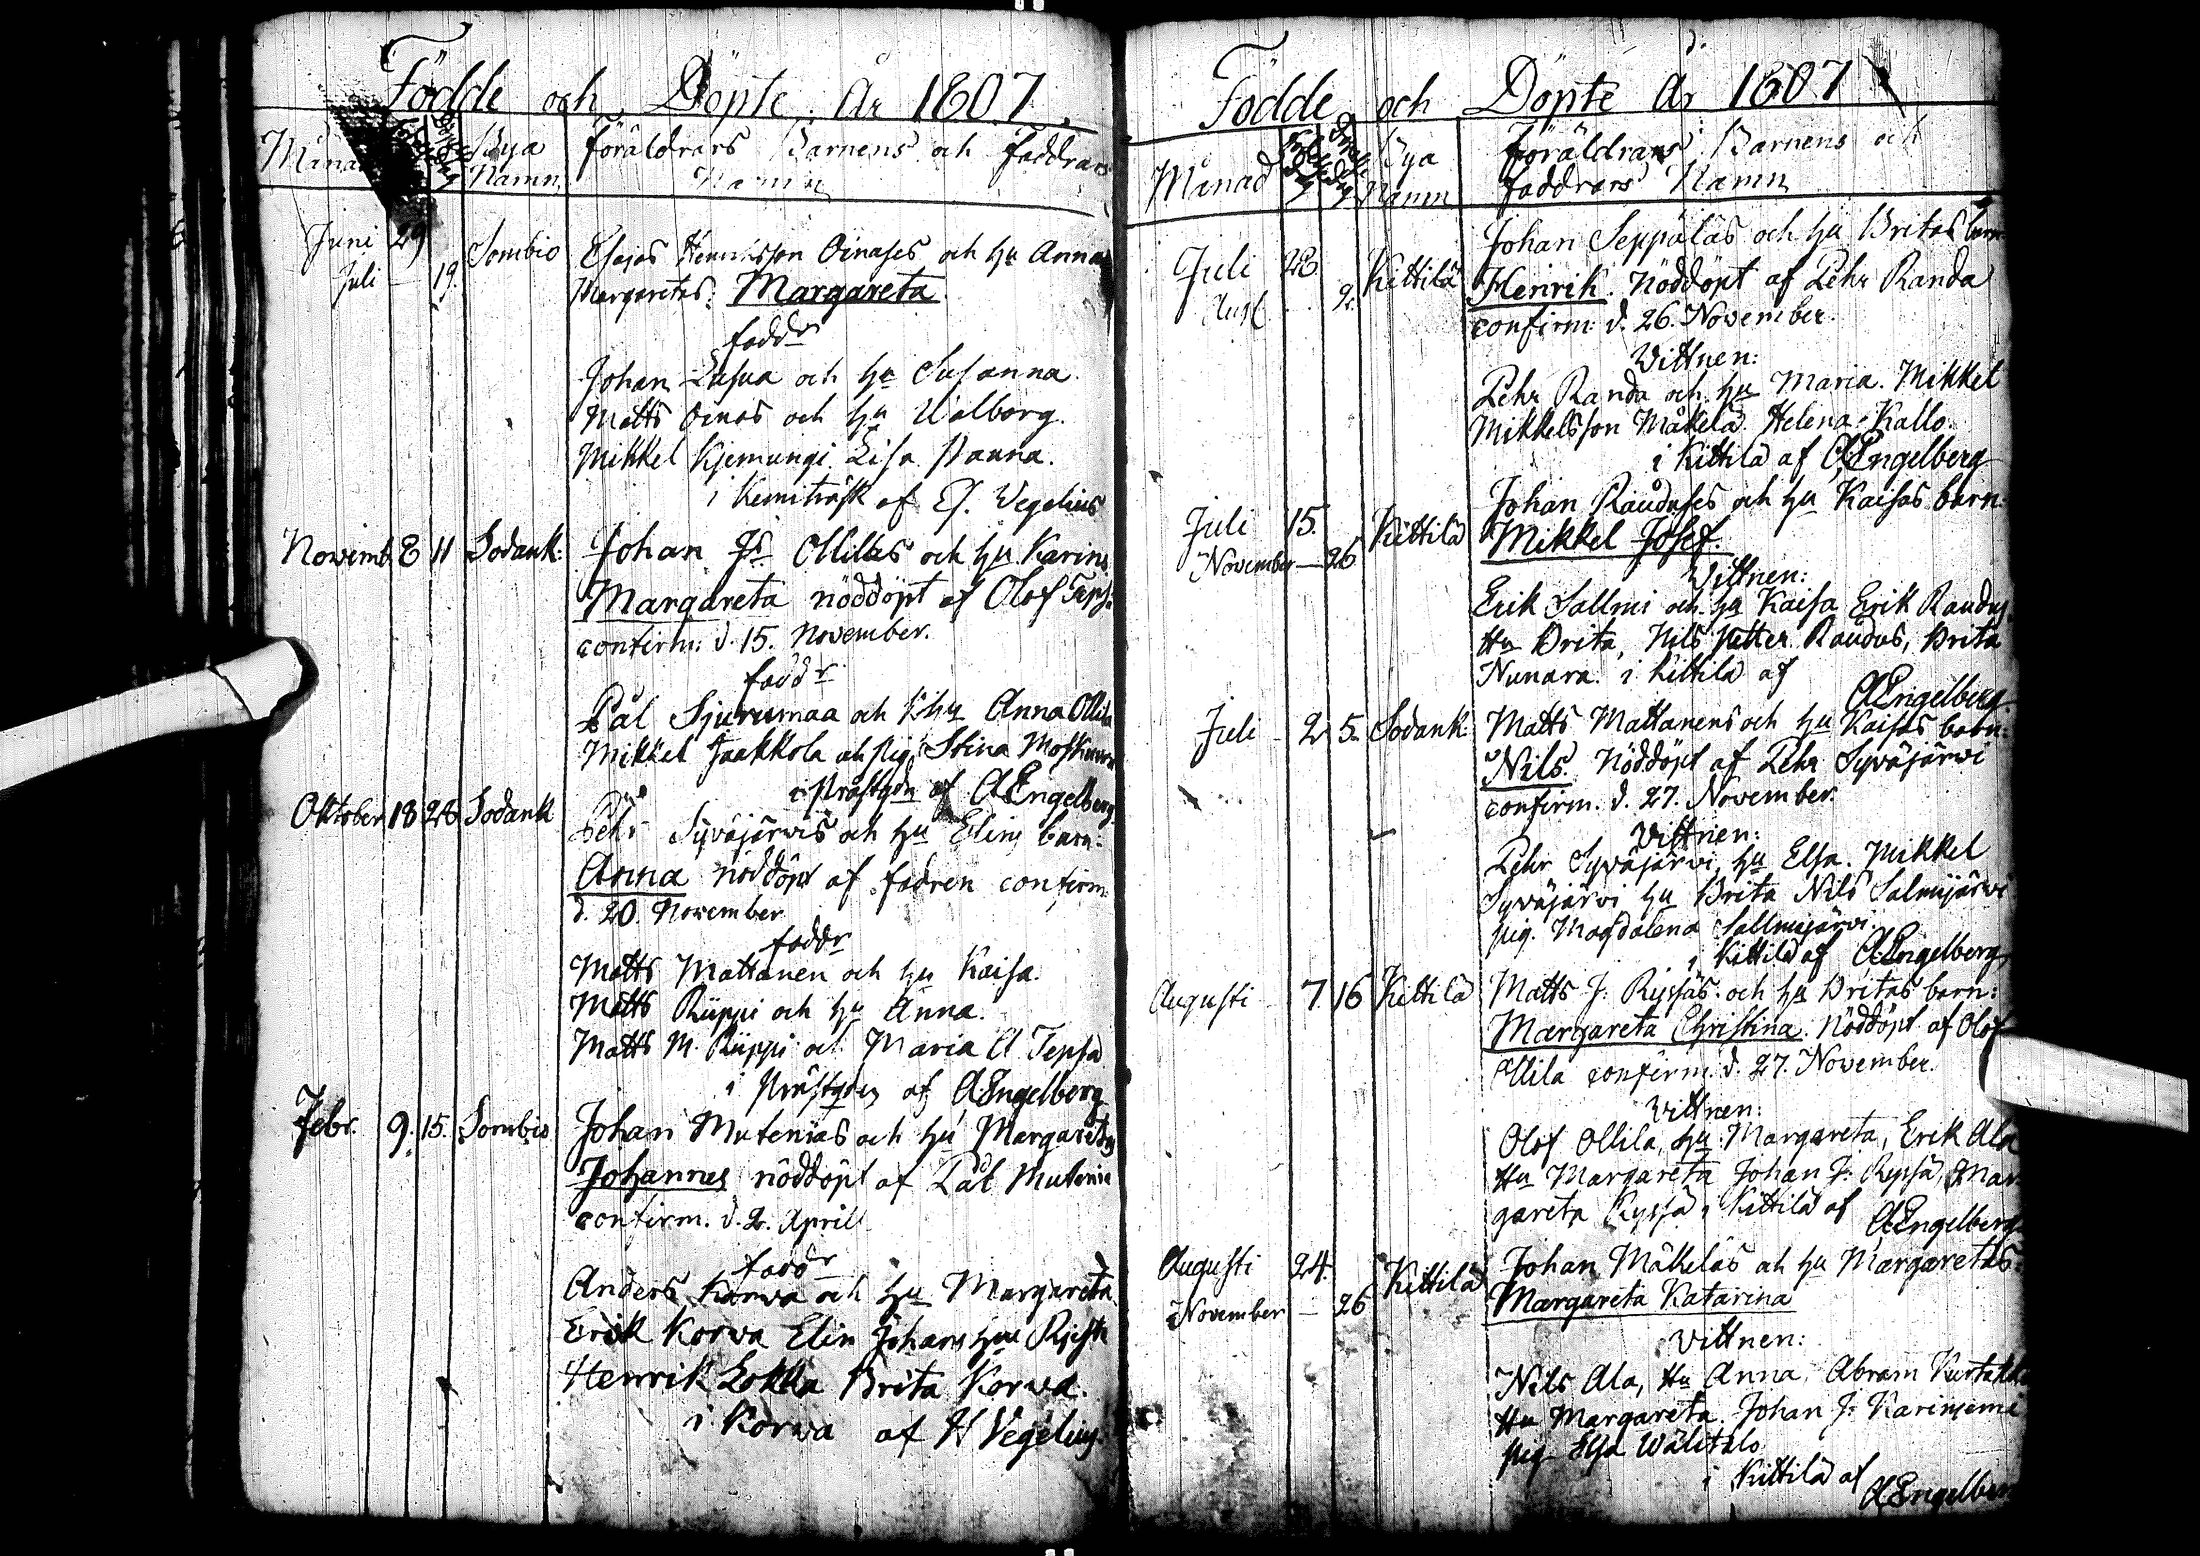 Födde och Döpte År 1807.
Bya Föräldrars Barnens och faddrars
Namn Namn
Juni 29 Sombio Esajas Henriksson Oinases och hu Anna
Juli — 19. Margaretas: Margareta.
faddr
Johan och hu Susanna
Matts Oinas och hu Walborg.
Mikkel Kjemungi Lisa Panna.
i Kemiträsk af Es. Wegelius
Novemb. 8 11 Sodank: Johan Js. Ollilas och hu Karins
Margareta nöddöpt af Olof Teps:
confirm: d. 15. November.
faddr
Pål Sjurumaa och hu Anna Ollila
Mikkel Jaakkola och pig. Stina
i Prästgdn af AEngelberg.
Oktober 18 28 Sodank Pehr Syväjärwis och hu Elins barn:
Anna nöddöpt af fadren confirm:
d. 20. November
faddr
Matts Mattanen och hu Kaisa.
Matts Riippi och hu Anna.
Matts M. Riippi och Maria A Tepsa
i Prästgdn af AEngelberg
Febr. 9. 15. Sombio Johan Mutenias och hu Margaretas
Johannes nöddöpt af Pål Mutenia
confirm. d. 2. April
faddr
Anders Korwa och hu Margareta.
Erik Korwa Elin Johans hu
Henrik Lokka Brita Korwa.
i Korwa af H Vegelius.
Födde och Döpte År 1807
Månad Bya Föräldrars Barnens och
Namn faddrars Namn
Johan Seppäläs och hu Britas barn
Juli 28 Kittilä Henrik. Nöddöpt af Pehr Randa
Aust 2. confirm: d. 26. November.
Vittnen:
Pehr Randa och hu Maria. Mikkel
Mikkelsson Mäkelä. Helena Kallo.
i Kittilä af AEngelberg
Johan Rauduses och hu Kaisas barn:
Juli 15. Kittilä Mikkel Josef.
November — 26
Vittnen:
Erik Sallmi och hu Kaisa Erik Raudus
Hu Brita, Nils Petter Raudus, Brita
Nunara. i Kittilä af
AEngelberg
Juli 2 5. Sodank: Matts Mattanens och hu Kaisas barn:
Nils. Nöddöpt af Pehr Syväjärwi
confirm. d. 27. November.
Vittnen:
Pehr Syväjärwi, hu Elsa. Mikkel
Syväjärvi hu Brita Nils Salmijärwi
pig. Magdalena Sallmijärvi.
i Kittilä af AEngelberg
Augusti 7. 16 Kittilä Matts J: Rypsäs och hu Britas barn:
Margareta Christina. Nöddöpt af Olof
Ollila confirm. d. 27. November.
Vittnen:
Olof Ollila, hu Margareta, Erik Ala
Hu Margareta Johan J: Rypsä, Mar:
gareta Rypsä, i Kittilä af AEngelberg
Augusti 24. Kittilä Johan Mäkeläs och hu Margaretas:
November — 26 Margareta Katarina
Vittnen:
Nils Ala, Hu Anna, Abram
Hu Margareta. Johan J: Kariniemi
pig Elsa Wälitalo
i Kittilä af
AEngelberg